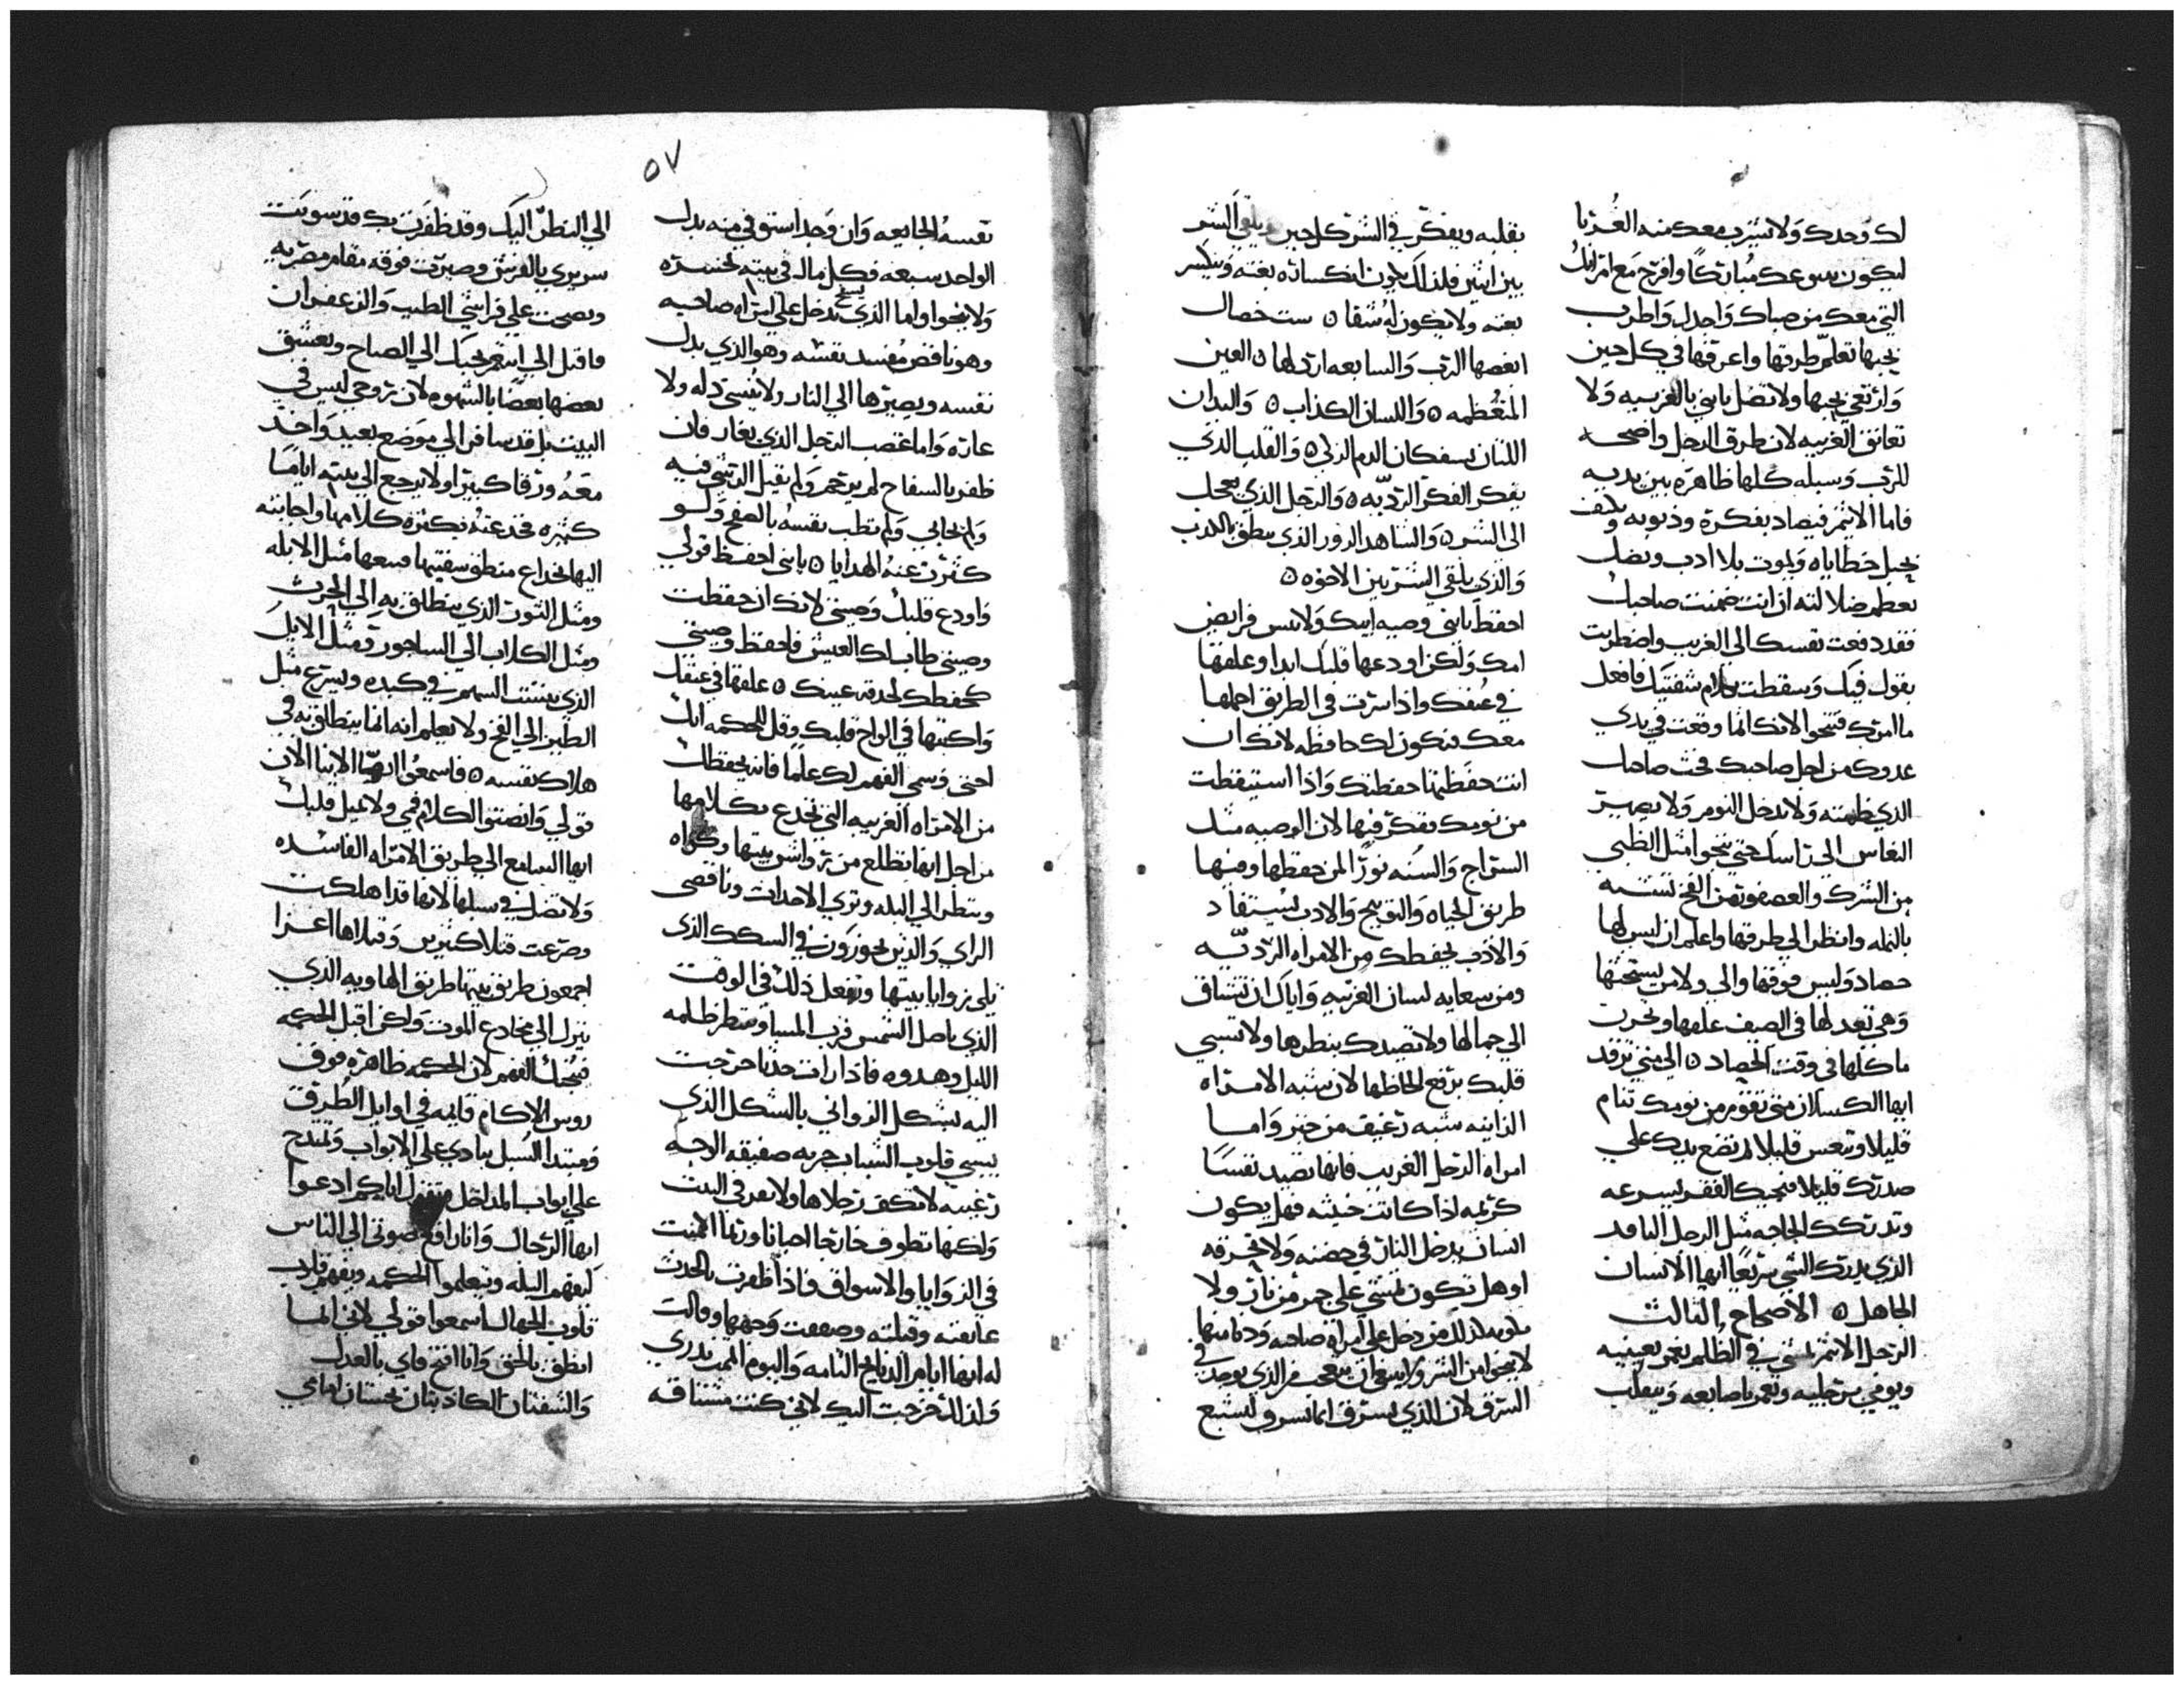 لك وحدك ولا تشرب معك منه الغربا
ليكون ينبوعك مباركا وافرح مع امراتك
التي معك من صباك واجدل واطرب
بحبها تعلم طرقها واعرفها في كل حين
وارتعي بحبها ولا تضل يابني بالغريبه ولا
تعانق الغريبه لان طرق الرجل واضحه
للرب وسبله كلها ظاهره بين يديه
فاما الاثيم فيصاد بفكره وذنوبه ويلتف
بحبل خطاياه ويموت بلا ادب ويضل
بعظم ضلالته ان انت ضمنت صاحبك
فقد دفعت نفسك الي الغريب واضطربت
بقول فيك وسقطت بكلام شفتيك فافعل
ما امرتك فتنجوا لانك انما وقعت في يدي
عدوك من اجل صاحبك فحث صاحبك
الذي ضمنته ولا يدخل النوم ولا يصير
النعاس الي راسك حتي تنجوا مثل الظبي
من الشرك والعصفور من الفخ تشبه
بالنمله وانظر الي طرقها واعلم ان ليس لها
حصاد وليس فوقها والي ولا من يستحثها
وهي تعد لها في الصيف علفها وتحرت
ماكلها في وقت الحصاد ٥ الي متي ترقد
ايها الكسلان متي تقوم من نومك تنام
قليلا وتنعس قليلا ثم تضع يدك علي
صدرك قليلا فيجيك الفقر بسرعه
وتدركك الحاجه مثل الرجل النافد
الذي يدرك الشي سريعا ايها الانسان
الجاهل ٥ الاصحاح الثالث
الرجل الاثيم يمشي في الظلم يغمز بعينيه
ويومي برجليه ويغمز باصابعه ويتقلب
بقلبه ويفكر في الشر كل حين ويلقي الشر
بين اثنين فلذلك يكون انكساره بغته وينكسر
بغته ولا يكون له شفا ٥ ست خصال
ابغضها الرب والسابعه ارذلها ٥ العين
المتعظمه ٥ واللسان الكذاب ٥ واليدان
اللتان يسفكان الدم الزكي ٥ والقلب الذي
يفكر الفكر الرديه ٥ والرجل الذي يعجل
الي الشر ٥ والشاهد الزور الذي ينطق بالكذب
والذي يلقي الشر بين الاخوه ٥
احفظ يابني وصيه ابيك ولا تنس فرايض
امك ولكن اودعها قلبك ابدا وعلقها
في عنقك واذا سرت في الطريق احملها
معك فتكون لك حافظه لانك ان
انت حفظتها حفظتك واذا استيقظت
من نومك تفكر فيها لان الوصيه مثل
السراج والسنه نورا لمن حفظها وفيها
طريق الحياه والتوبيخ والادب يستفاد
والادب يحفظك من الامراه الرديه
ومن سعايه لسان الغريبه واياك ان تشتاق
الي جمالها ولا تصيدك بنظرها ولا تسبي
قلبك برفع الحاظها لان شبه الامراه
الزانيه شبه رغيف من خبز واما
امراه الرجل الغريب فانها تصيد نفسا
كريمه اذا كانت خبيثه فهل يكون
انسان يدخل النار في حضنه ولا تحرقه
او هل تكون تمشي علي جمر من نار ولا
يكويه كذلك من دخل علي امراه صاحبه ودنا منها
لا ينجوا من الشر وليس ان يتعجب من الذي يوجد في
السرق لان الذي يسرق انما يسرق ليشبع
٥٧
نفسه الجايعه وان وجد استوفي منه بدل
الواحد سبعه فكل ماله في بيته يخسره
ولا ينجوا واما الذي يدخل علي امراه صاحبه
وهو ناقص مفسد نفسه وهو الذي يدل
نفسه ويصيرها الي النار ولا ينسي ذله ولا
عاره واما غضب الرجل الذي يغار فان
ظفر بالسفاح لم يرحم ولم يقبل الرشي فيه
ولم يحابي ولم تطب نفسه بالصفح ولو
كثرت عنه الهدايا ٥ يابني احفظ قولي
واودع قلبك وصيتي لانك ان حفظت
وصيتي طاب لك العيش فاحفظ وصيتي
كحفظك لحدقه عينك ٥ علقها في عنقك
واكتبها في الواح قلبك وقل للحكمه انك
اختي وسمي الفهم لك علما فانه يحفظك
من الامراه الغريبه التي تخدع بكلامها
من اجل انها تطلع من رواشن بيتها وكواه
وينظر الي البله وتري الاحداث وناقصي
الراي والذين يجوزون في السكك الذي
تلي زوايا بيتها وتفعل ذلك في الوقت
الذي ياصل الشمس قرب المسا وتنتظر ظلمه
الليل وهدوه فاذا رات حدثا خرجت
اليه بشكل الزواني بالشكل الذي
يسبي قلوب الشباب جريه صفيقه الوجه
رغيبه لا تكف رجلاها ولا تقر في البيت
ولكنها تطوف خارجا احيانا وربما اكمنت
في الزوايا والاسواق فاذا ظفرت بالحدث
عانقته وقبلته وصفقت وجهها وقالت
له انها ايام الذبايح التامه واليوم اتممت نذري
ولذلك خرجت اليك لاني كنت مشتاقه
الي النظر اليك وقد ظفرت بك قد سويت
سريري بالفرش وصيرت فوقه مقام مصريه
ونضحت علي فراشي الطيب والزعفران
فاقبل الي لنتنعم بحبك الي الصباح ونعشق
بعضها بعضا بالشهوه لان زوجي ليس في
البيت بل قد سافر الي موضع بعيد واخد
معه ورقا كبيرا ولا يرجع الي بيته اياما
كثيره فخدعته بكثره كلامها واجابته
اليها بخداع منطق شفتيها فتبعها مثل الابله
ومثل الثور الذي ينطلق به الي الحرث
ومثل الكلاب الي الساجور ومثل الايل
الذي ينشب السهم في كبده ويسرع مثل
الطير الي الفخ ولا يعلم انه انما ينطلق به في
هلاك نفسه ٥ فاسمعوا ايها الابنا الان
قولي وانصتوا لكلام فمي ولا تميل قلبك
ايها السامع الي طريق الامراه الفاسده
ولا تضل في سبلها لانها قد اهلكت
وصرعت قتلا كثيرين وقتلاها اعزا
اجمعون طريق بيتها طريق الهاويه الذي
ينزل الي مخادع الموت ولكن اقبل الحكمه
فيجيك الفهم لان الحكمه ظاهره فوق
روس الاكام قايمه في اوايل الطرق
ومبتدا السبل ينادي علي الابواب وتمتدح
علي ابواب المداخل وتقول اياكم ادعوا
ايها الرجال وانا رافع صوتي الي الناس
ليفهم البله ويتعلموا الحكمه ويفهم قلوب
قلوب الجهال اسمعوا قولي لاني انما
انطق بالحق وانا افتح فاي بالعدل
والشفتان الكاذبتان نجستان امامي